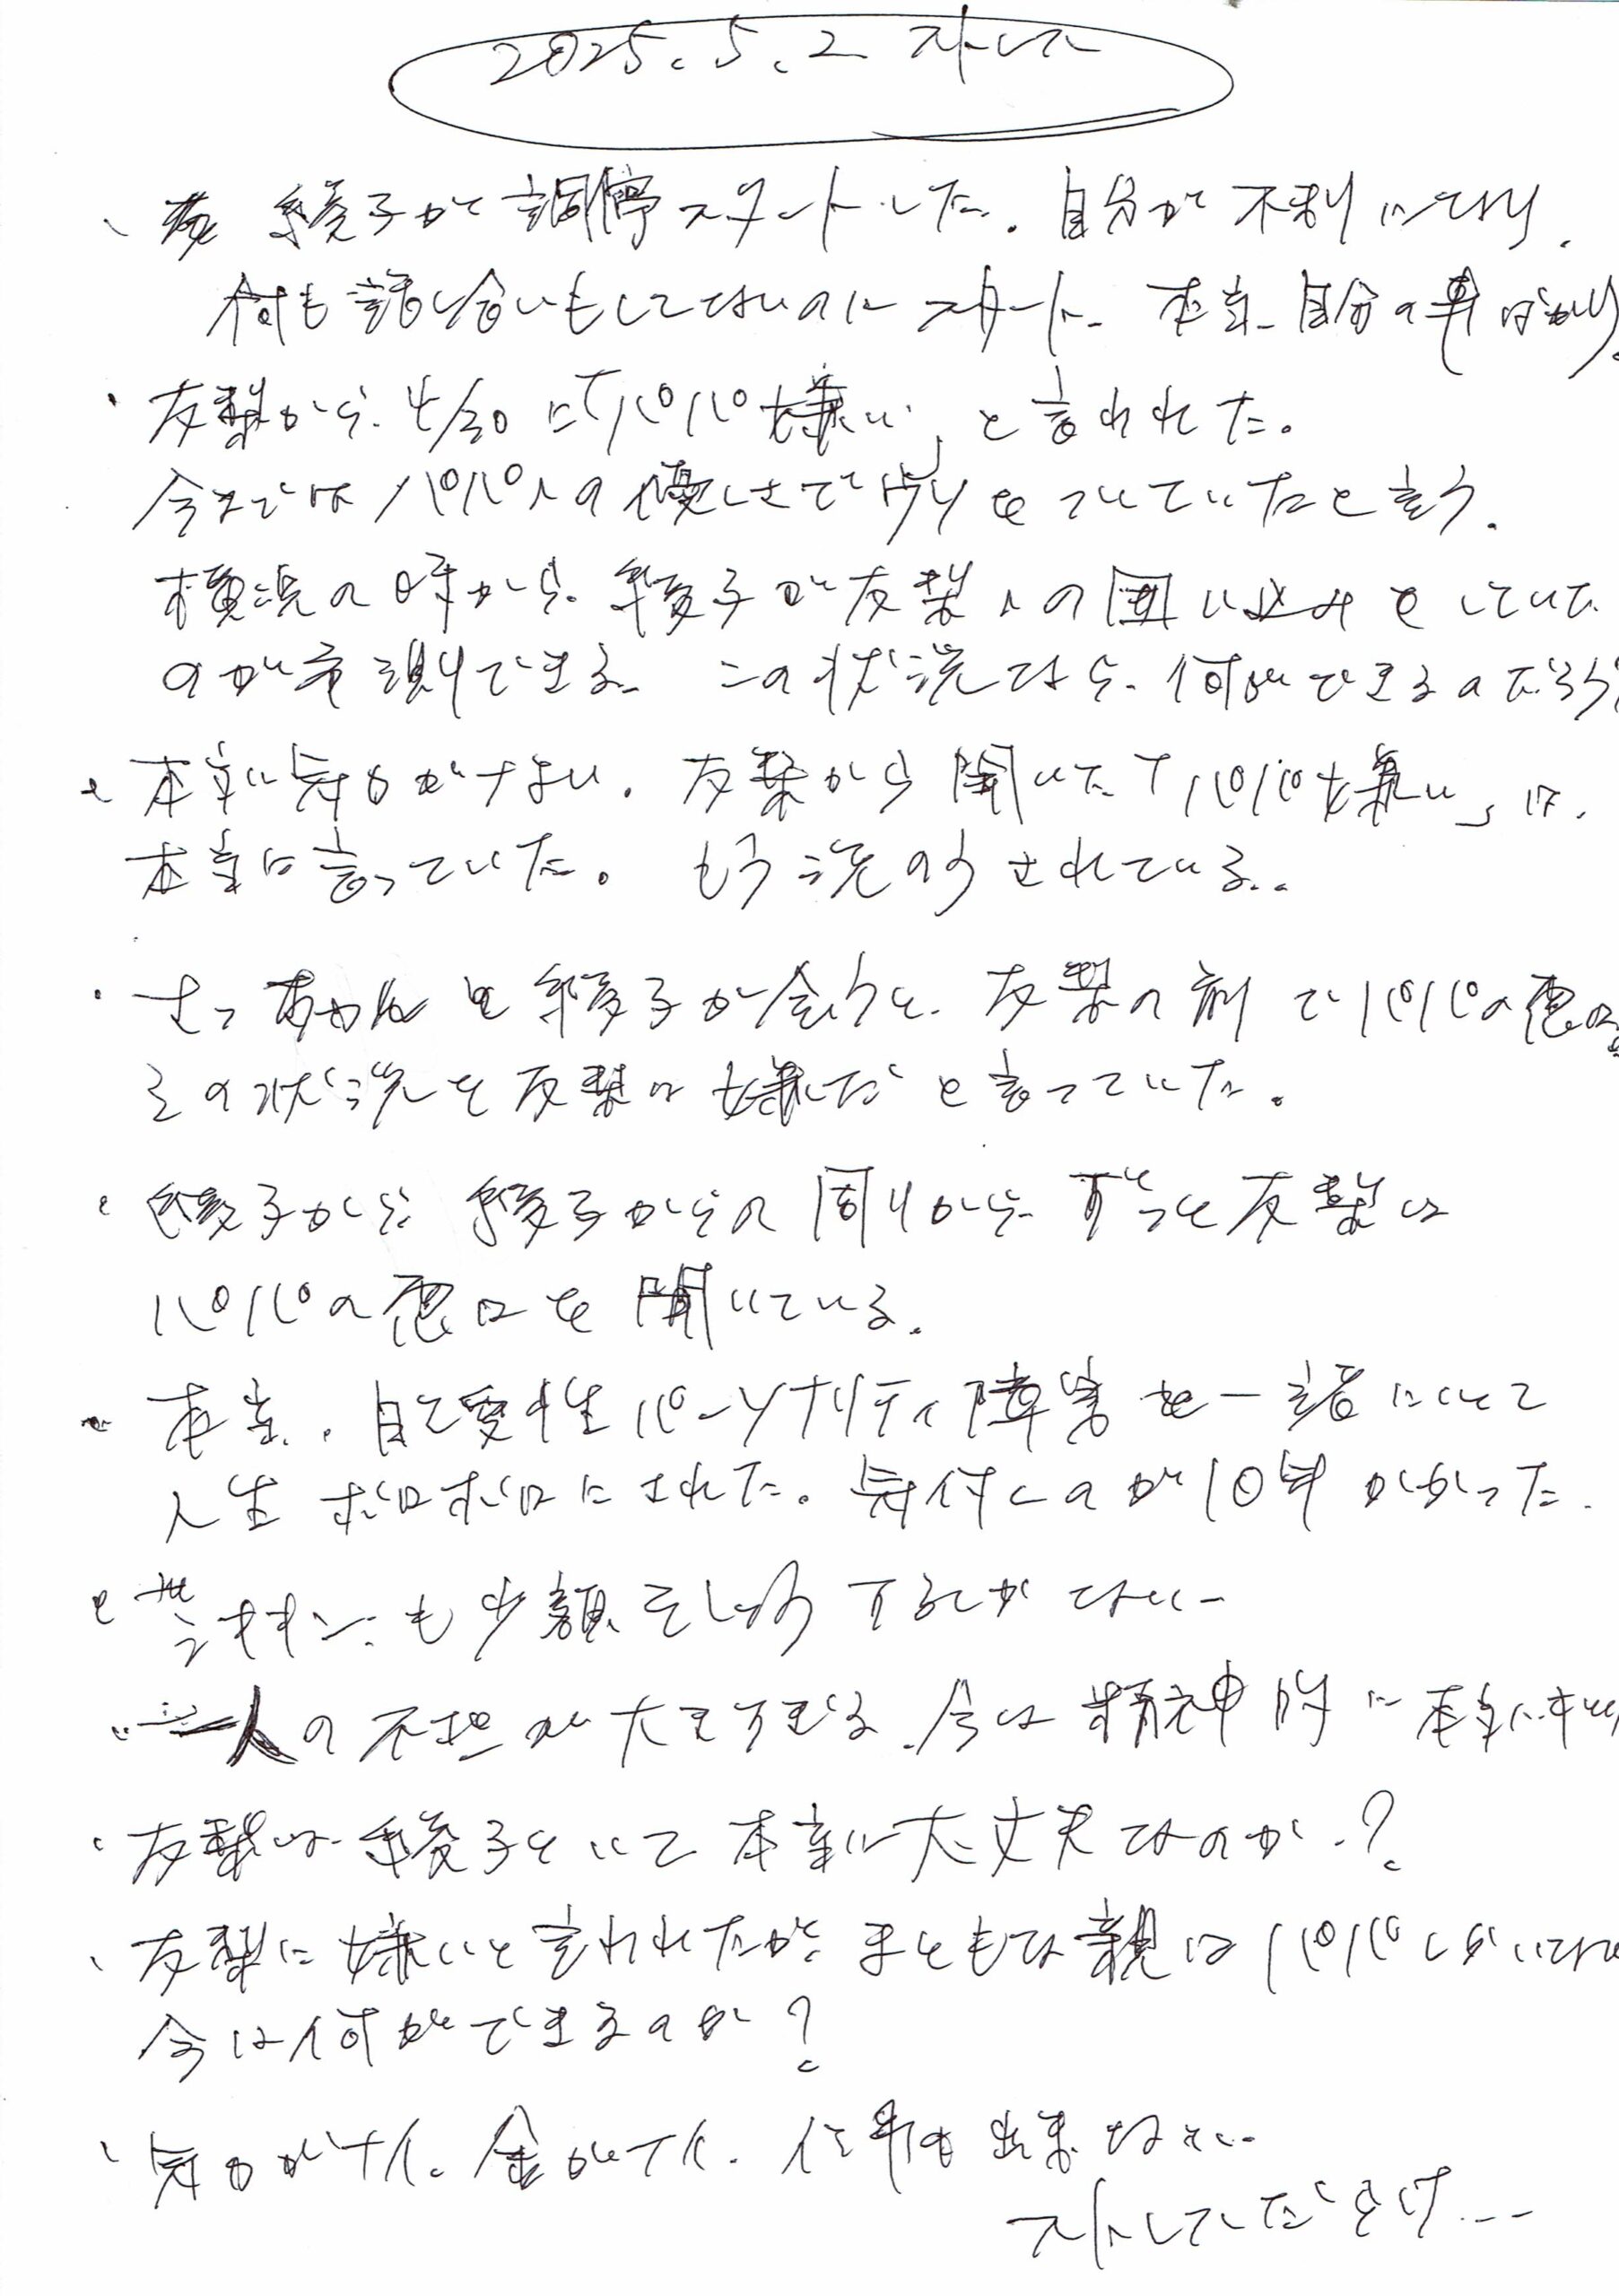 2025.5.2 ストレス
、綾子が調停スタートした。自分が不利になり、
何も話し合いもしてないのにスタート。本当、自分の事ばかり。
・友梨から、4/30に「パパ嫌い」と言われた。
今まではパパへの優しさで嘘をついていたと言う。
横浜の時から、綾子が友梨への囲い込みをしていた
のが予測できる。この状況なら、何ができるのだろう
・本当に気力がない。友梨から聞いた「パパ嫌い」は、
本当に言っていた。もう洗のうされている。
・ と綾子が会うと、友梨の前でパパの悪口
その状況を友梨は嫌だと言っていた。
・綾子から、綾子からの周りから、ずっと友梨は
パパの悪口を聞いている。
・本当、自己愛性パーソナリティ障害と一諸にいて
人生ボロボロにされた。気付くのが10年かかった。
・ も少額そしょうするしかない
・一人の不担が大きすぎる。今は精神的に本当に
・友梨は、綾子といて本当に大丈夫なのか?
、友梨に嫌いと言われたが、まともな親はパパしかいない
今は何ができるのか?
、気力がナイ。金がナイ。仕事も出来ない。
ストレスだらけ...